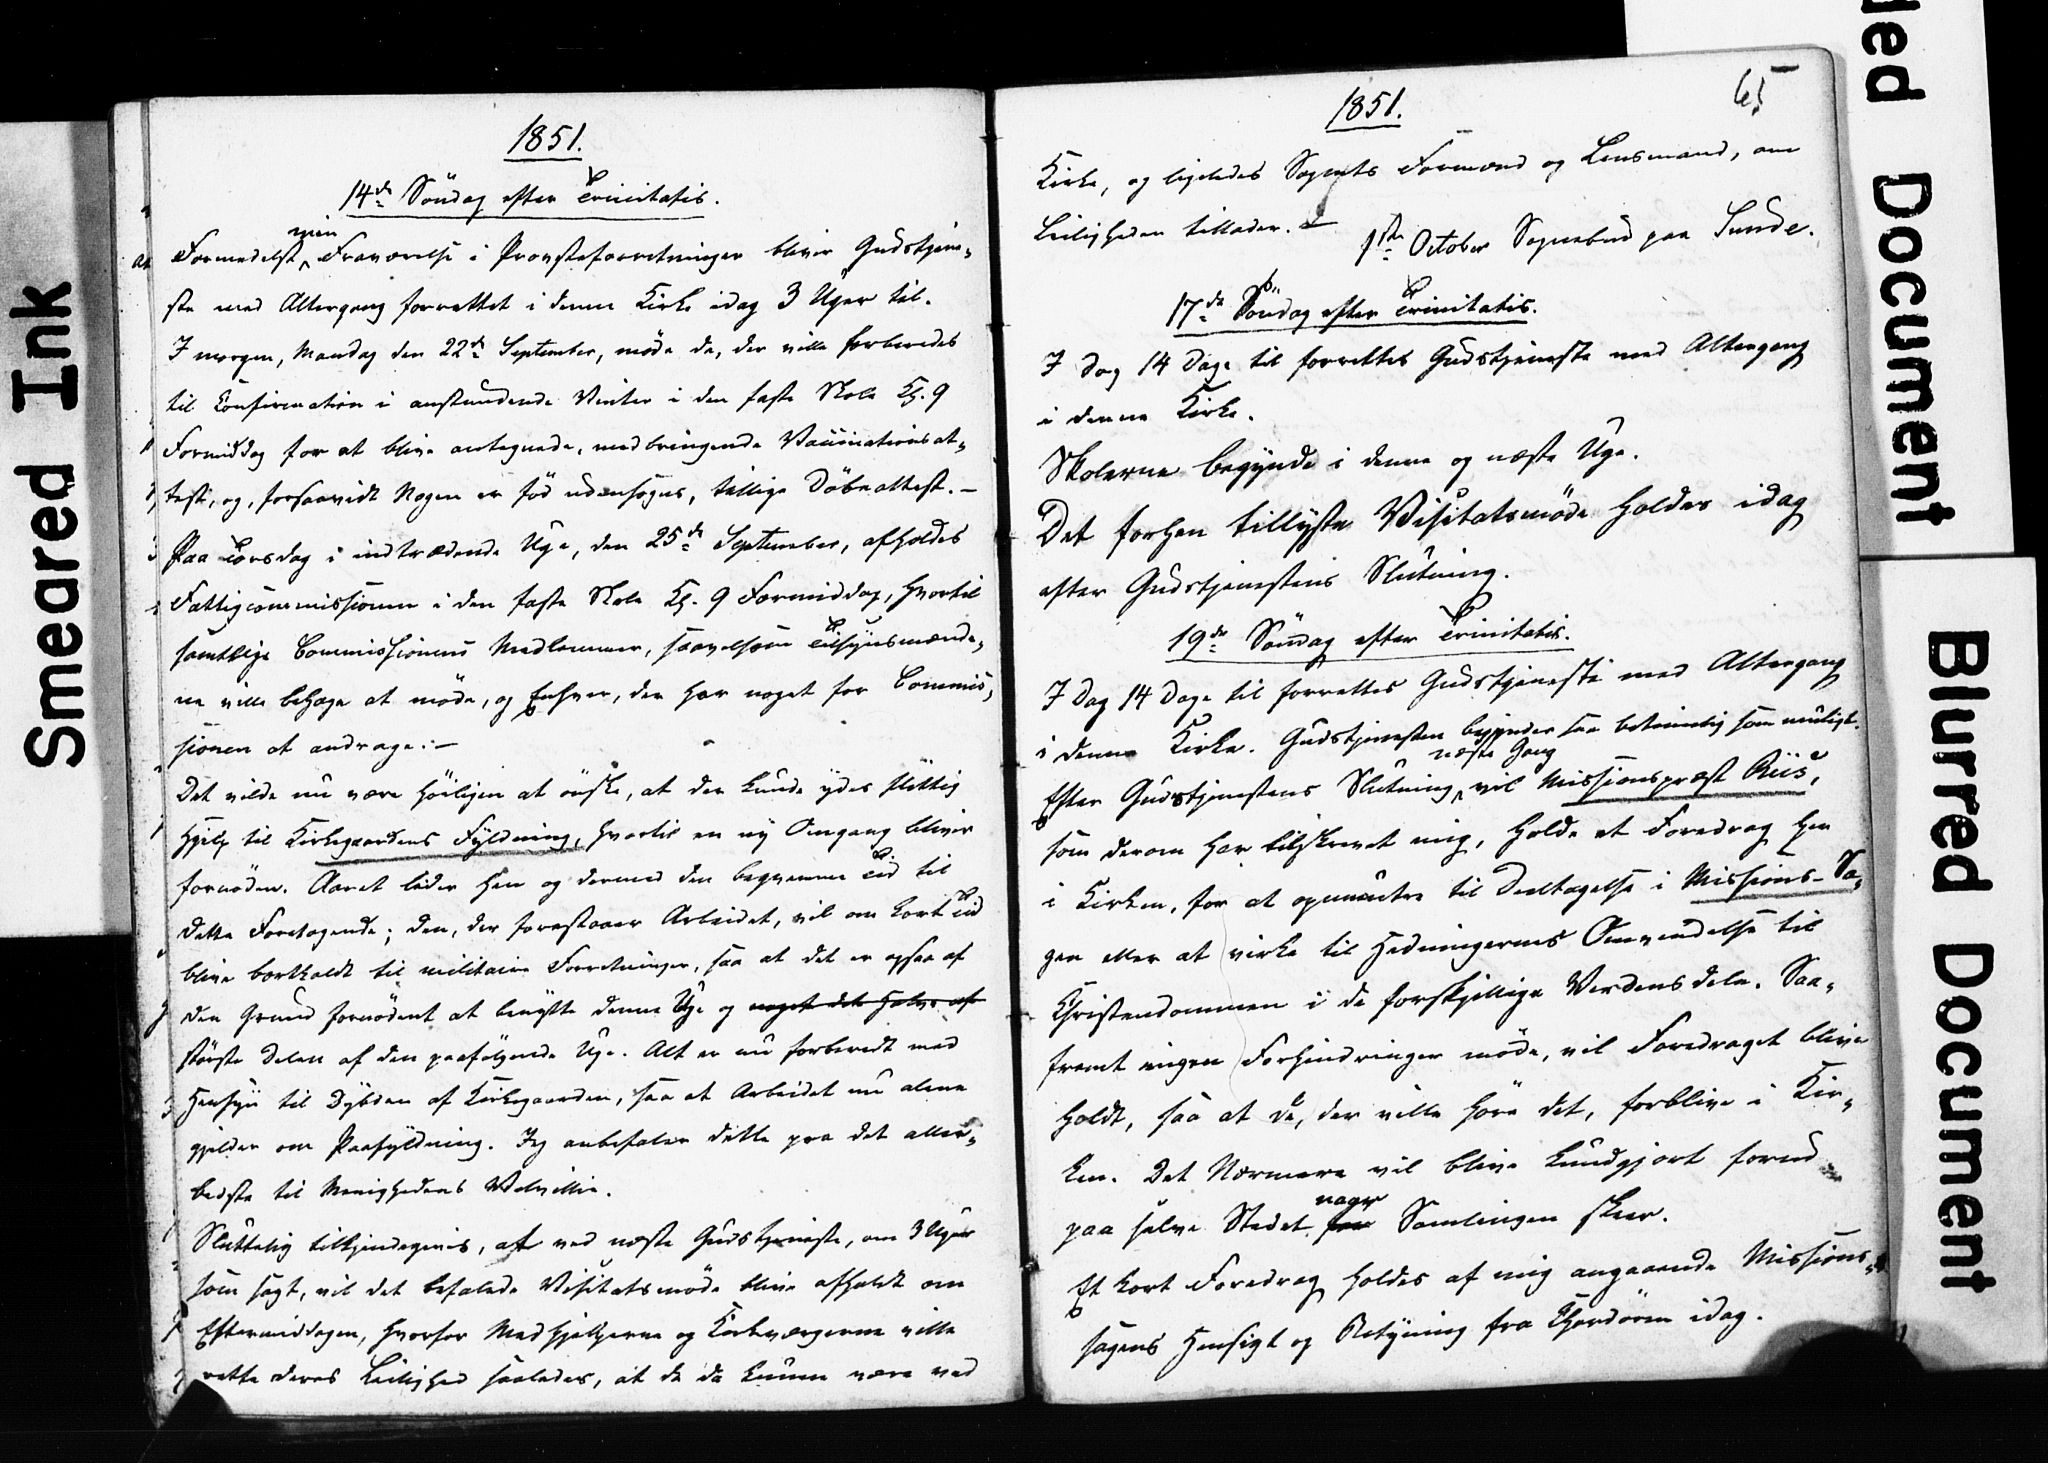 1851.
14de Söndag efter Trinitatis.
min
Formedelst Fraværelse i Provsteforretninger bliver Gudstjene-
ste med Altergang forrettet i denne Kirke idag 3 Uger til.
I morgen, Mandag den 22de September, møde de, der ville forberedes
til Confirmation i anstundende Vinter i den faste Skole Kl. 9
Formiddag for at blive antegnede, medbringende Vaccinationsat-
test, og, forsaavidt Nogen er fød udensogns, tillige Døbeattest. –
Paa Torsdag i indtrædende Uge, den 25de September, afholdes
Fattigcommissionen i den faste Skole Kl. 9 Formiddag, hvortil
samtlige Commissionens Medlemmer, saavelsom Tilsynsmænde-
ne ville behage at møde, og Enhver, der har noget for Commis-
sionen at andrage. –
Det vilde nu være høiligen at ønske, at der kunde ydes flittig
Hjelp til Kirkegaardens Fyldning, hvortil en ny Omgang bliver
fornøden. Aaret lider hen og dermed den beqvemme Tid til
dette Foretagende; den, der forestaaer Arbeidet, vil om kort Tid
blive bortkaldt til militaire Forretninger, saa at det er ogsaa af
den Grund fornødent at benytte denne Uge og noget det halve af
største Delen af den paafølgende Uge. Alt er nu forberedt med
Hensyn til Dybden af Kirkegaarden, saa at Arbeidet nu alene
gjelder om Paafyldning. Jeg anbefaler dette paa det aller-
bedste til Menighedens Velvillie.
Sluttelig tilkjendegives, at ved næste Gudstjeneste, om 3 Uger
som sagt, vil det befalede Visitatsmøde blive afholdt om
Eftermiddagen, hvorfor Medhjelperne og Kirkeværgerne ville
rette deres Leilighed saaledes, at de da kunne være ved
65
1851.
Kirke, og ligeledes Sognets Formænd og Lensmand, om
Leiligheden tillader.
1ste October Sognebud paa Sunde.
17de Söndag efter Trinitatis.
I Dag 14 Dage til forrettes Gudstjeneste med Altergang
i denne Kirke.
Skolerne begynde i denne og næste Uge.
Det forhen tillyste Visitatsmøde holdes idag
efter Gudstjenestens Slutning.
19de Söndag efter Trinitatis.
I Dag 14 Dage til forrettes Gudstjeneste med Altergang
i denne Kirke. Gudstjenesten begynder saa betimelig som muligt.
næste Gang
Efter Gudstjenestens Slutning vil Missionspræst Riis,
som derom har tilskrevet mig, holde et Foredrag her
i Kirken, for at opmuntre til Deeltagelse i Missions-Sa-
gen eller at virke til Hedningernes Omvendelse til
Christendommen i de forskjellige Verdensdele. Saa-
fremt ingen Forhindringer møde, vil Foredraget blive
holdt, saa at de, der ville høre det, forblive i Kir-
ken. Det Nærmere vil blive kundgjort forud
naar
paa selve Stedet, før Samlingen skeer.
Et kort Foredrag holdes af mig angaaende Missions-
sagens Hensigt og Betydning fra Chordøren idag.
Smeared Ink
Document
Blurred Document